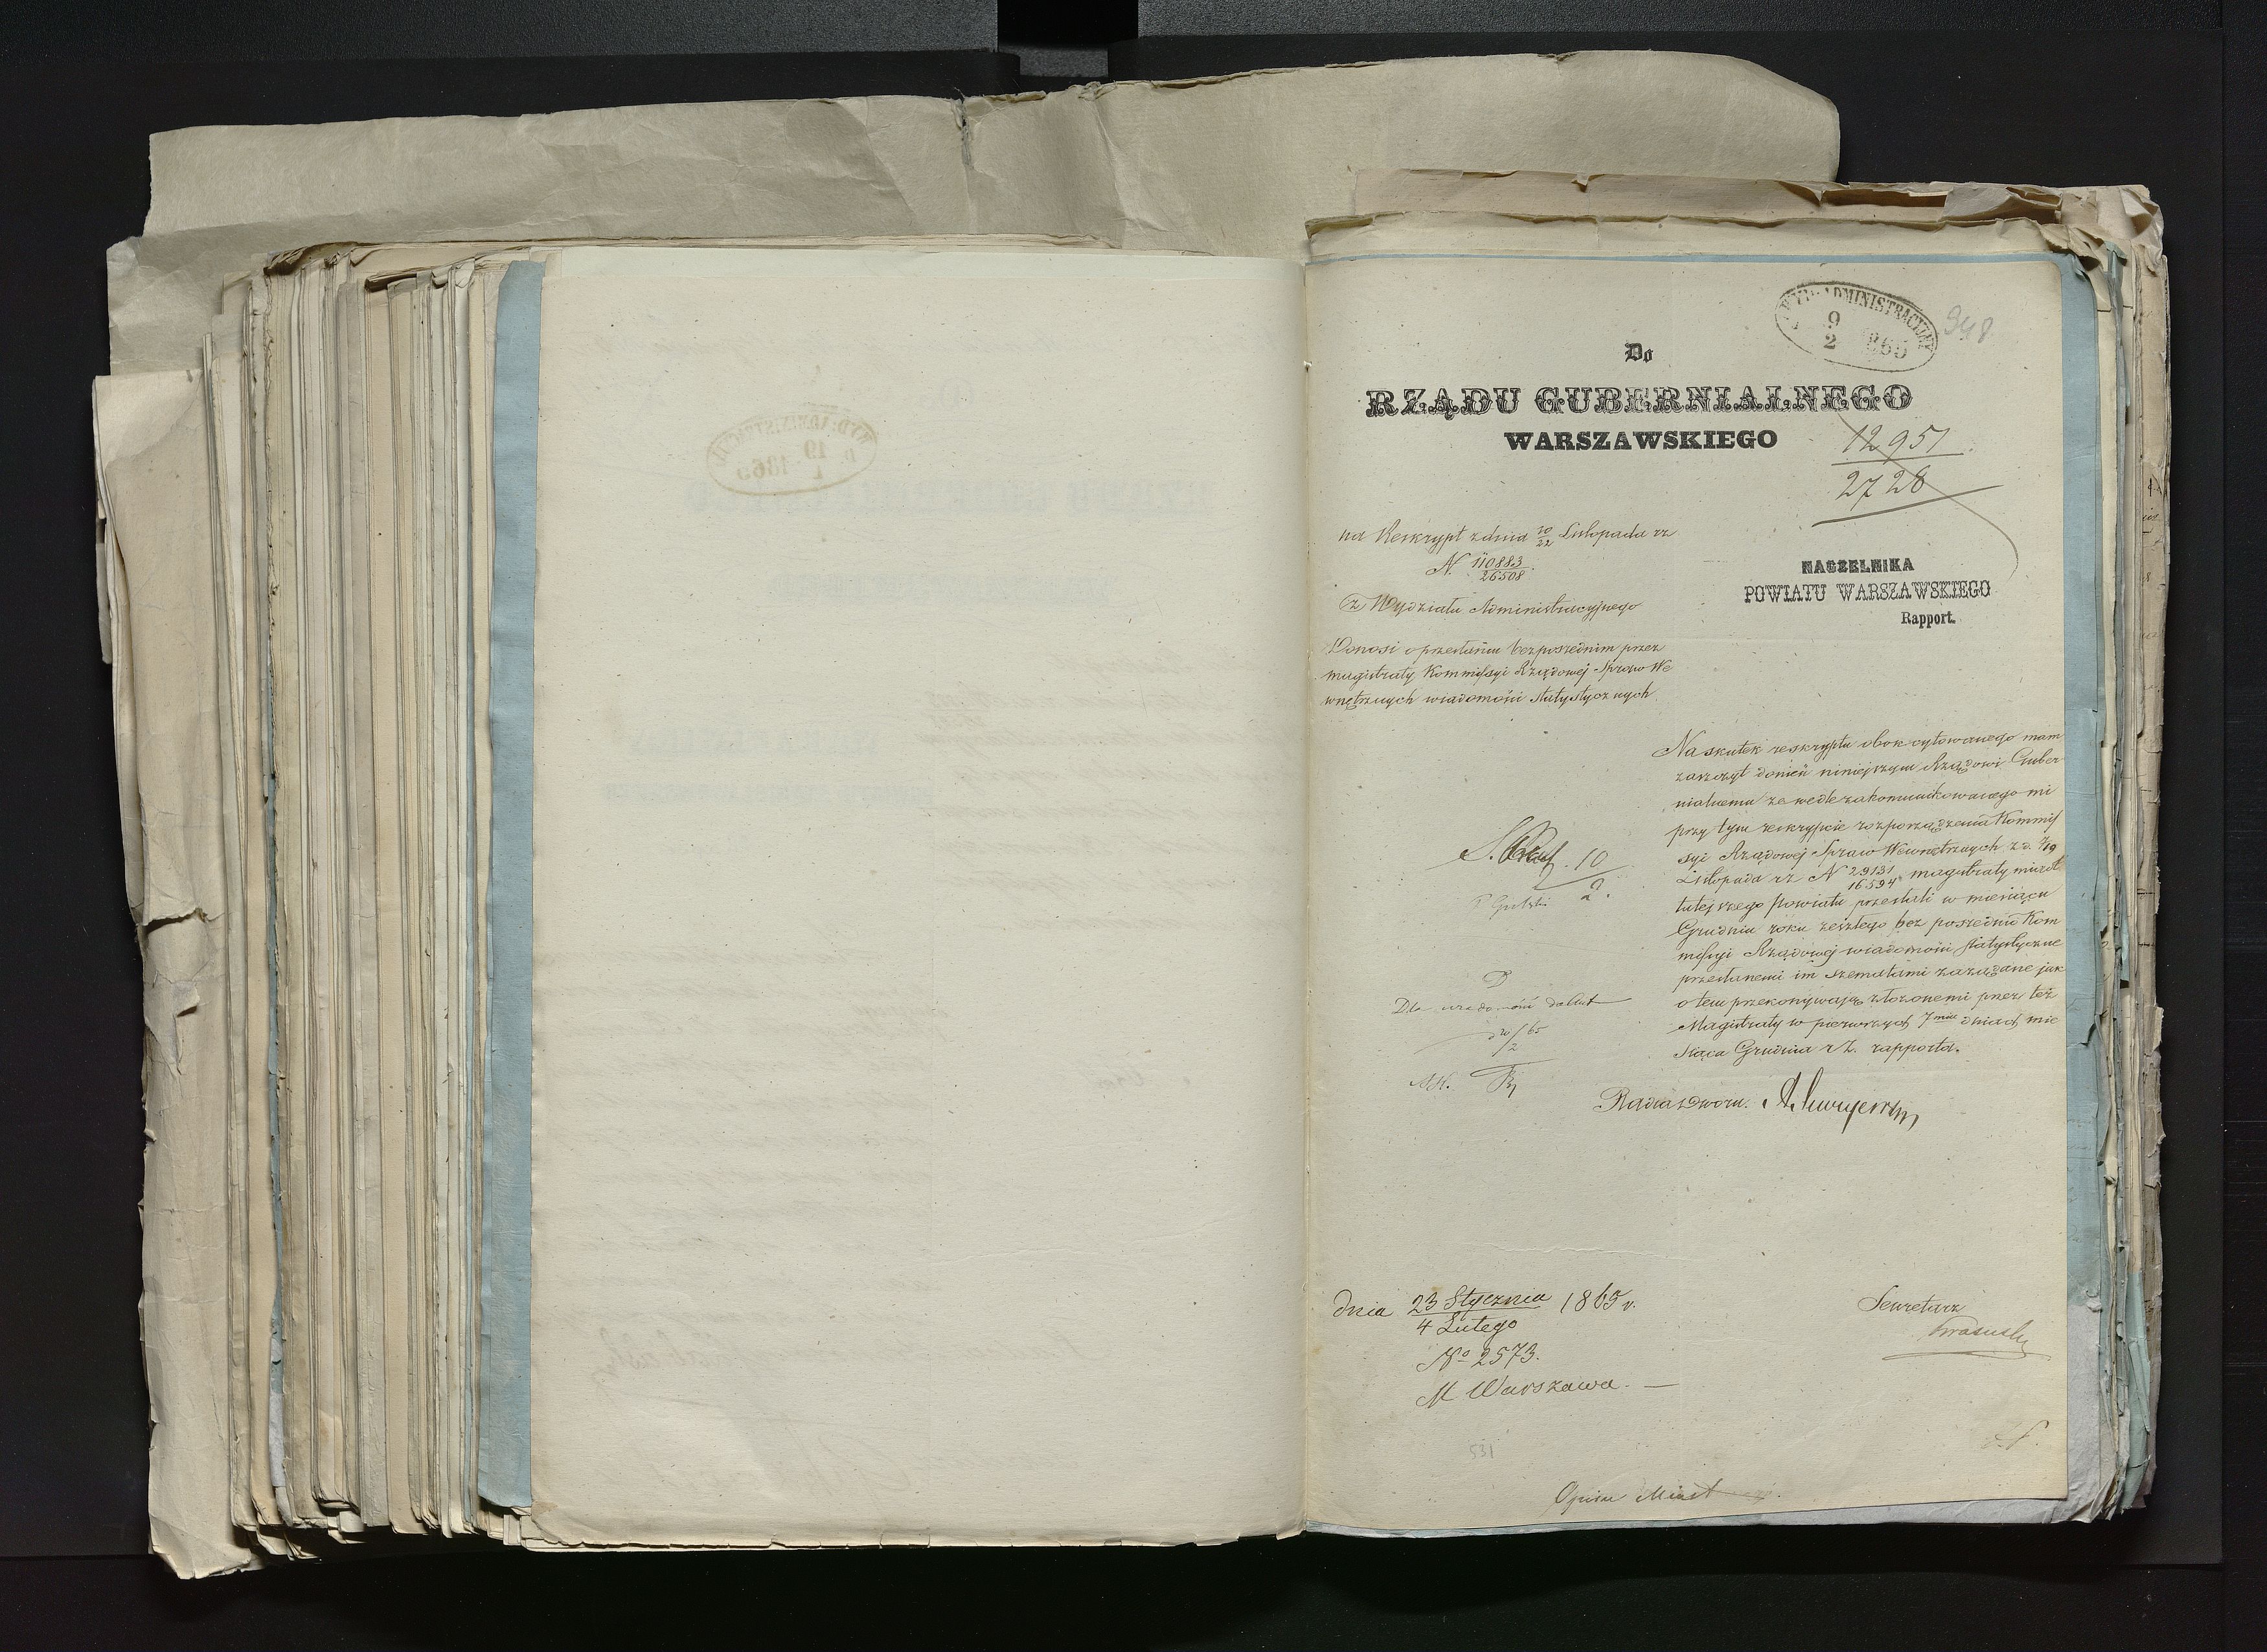 WYD: ADMINISTRACYJNY
9
2 1865
948
Do
RZĄDU GUBERNIALNEGO
WARSZAWSKIEGO
12951
2728
na Reskrypt z dnia 10/22 Listopada rz
N. 110883/26508
z Wydziału Administracyjnego
NACZELNIKA
POWIATU WARSZAWSKIEGO
Rapport.
Donosi o przesłaniu bezpośrednim przez
magistraty Kommissyi Rządowej Spraw We
wnętrznych wiadomości statystycznych
Na skutek reskryptu obok cytowanego mam
zaszczyt donieść niniejszym Rządowi Guber
nialnemu że wedle zakomunikowanego mi
przy tym reskrypcie rozporządzenia Kommis
syi Rządowej Spraw Wewnętrznych z d. 7/19
Listopada rz N 29131/16594 magistraty miast
tutejszego Powiatu przesłali w miesiącu
Grudniu roku zeszłego bez pośrednio Kom
missyi Rządowej wiadomości statystyczne
przesłanemi im szematami zażądane jak
o tem przekonywają złożonemi przez też
Magistraty w pierwszych 7miu dniach mie
siąca Grudnia r z. rapporta.
10
2.
Dla wiadomości do akt
20/65
2
Radca Dworu.
dnia 23 Stycznia/4 Lutego 1865 r.
No 2573.
M Warszawa. —
Sekretarz
Krasuski
531
Opisu Miast
WYD: ADMINISTRACYJNY
19
1 1865